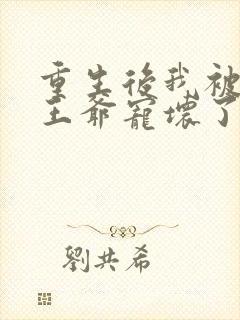 重生後我被
王爺寵壞了
劉共希